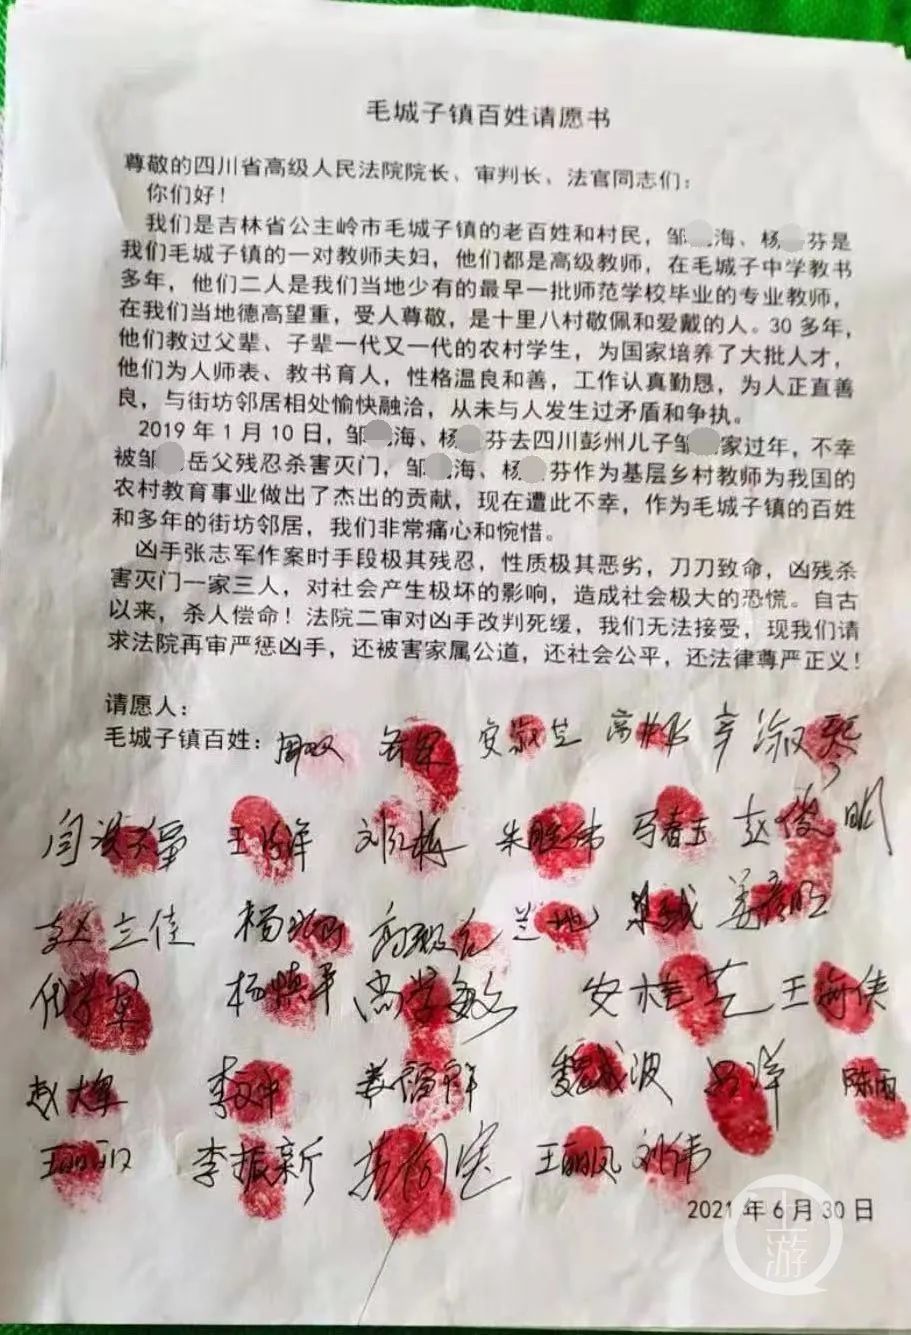 毛城子镇百姓请愿书
尊敬的四川省高级人民法院院长、审判长、法官同志们：
你们好！
我们是吉林省公主岭市毛城子镇的老百姓和村民，邹 海、杨 芬是
我们毛城子镇的一对教师夫妇，他们都是高级教师，在毛城子中学教书
多年，他们二人是我们当地少有的最早一批师范学校毕业的专业教师，
在我们当地德高望重，受人尊敬，是十里八村敬佩和爱戴的人。30 多年，
他们教过父辈、子辈一代又一代的农村学生，为国家培养了大批人才，
他们为人师表、教书育人，性格温良和善，工作认真勤恳，为人正直善
良，与街坊邻居相处愉快融洽，从未与人发生过矛盾和争执。
2019 年 1 月 10 日，邹 海、杨 芬去四川彭州儿子邹 家过年，不幸
被邹 岳父残忍杀害灭门，邹 海、杨 芬作为基层乡村教师为我国的
农村教育事业做出了杰出的贡献，现在遭此不幸，作为毛城子镇的百姓
和多年的街坊邻居，我们非常痛心和惋惜。
凶手张志军作案时手段极其残忍，性质极其恶劣，刀刀致命，凶残杀
害灭门一家三人，对社会产生极坏的影响，造成社会极大的恐慌。自古
以来，杀人偿命！法院二审对凶手改判死缓，我们无法接受，现我们请
求法院再审严惩凶手，还被害家属公道，还社会公平，还法律尊严正义！
请愿人：
毛城子镇百姓： 安淑兰
王 洋 刘红梅 朱胜伟 马春玉 赵俊明
赵立佳 杨 兰地 姜彦臣
杨焕平 尚学敏 安桂芝 王海侠
赵大军 李 魏 波 吕洋 陈雨
王 李振新 王丽凤 刘伟
2021 年 6 月 30 日
上游